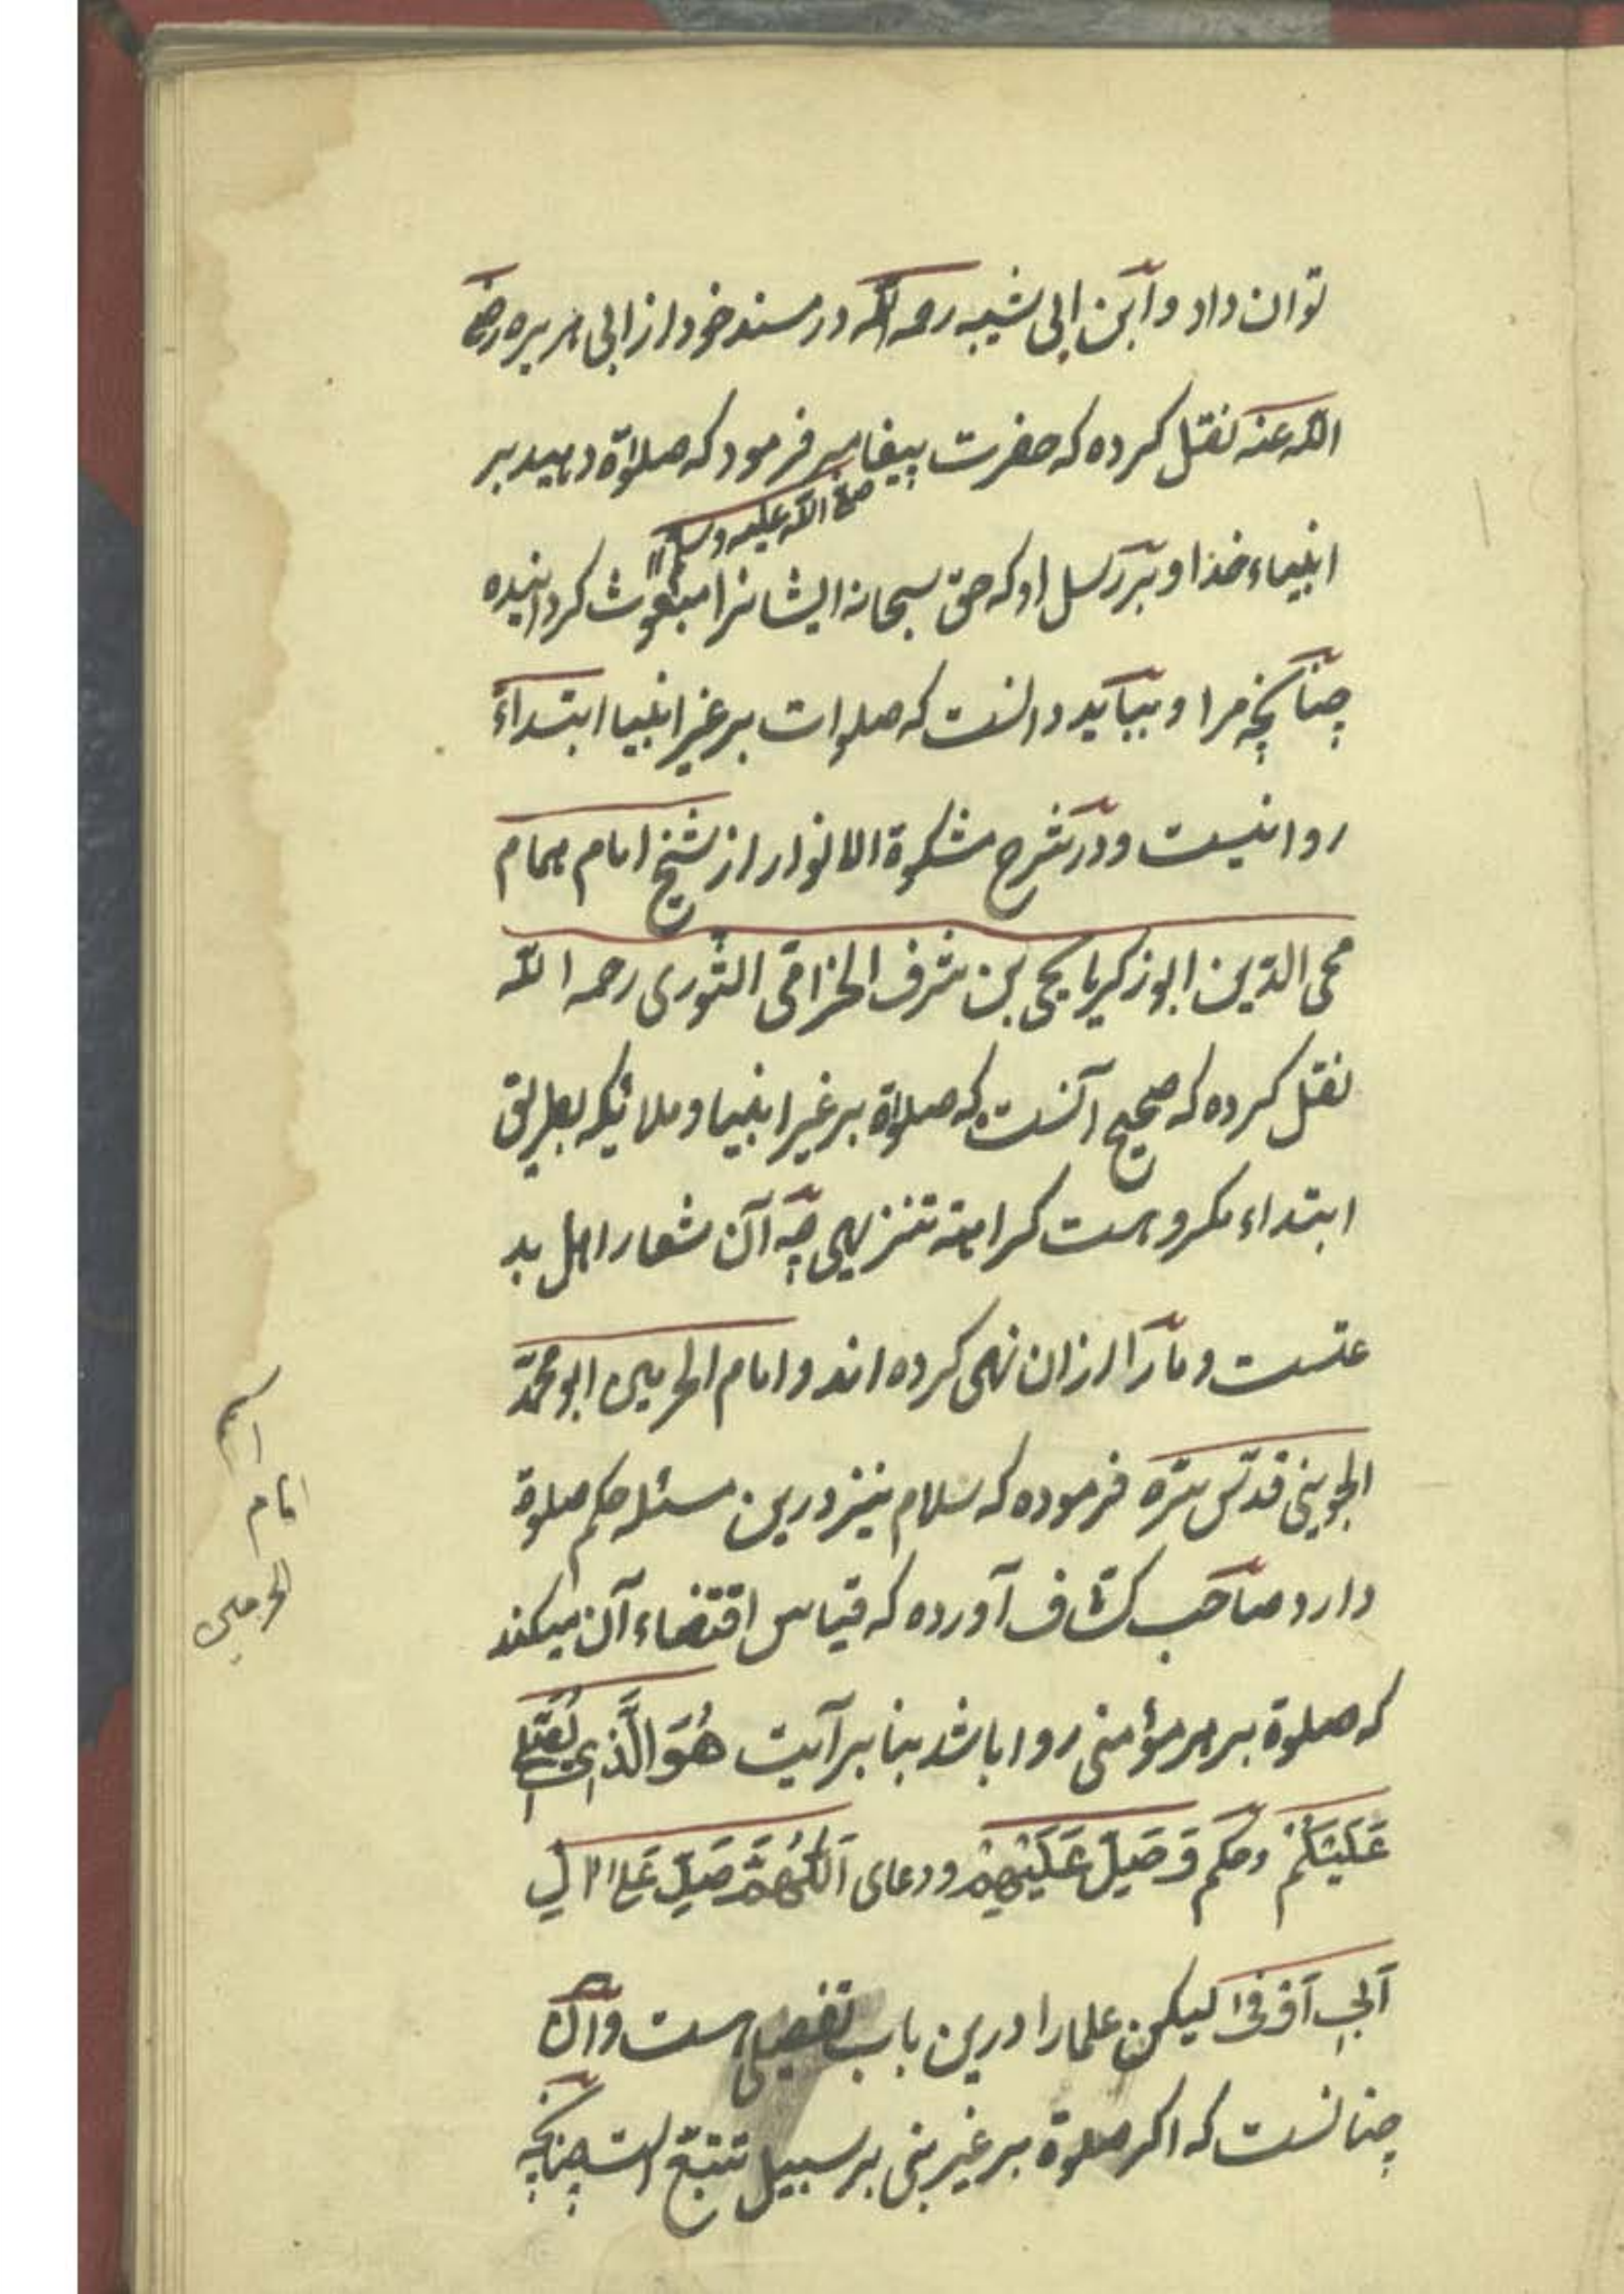 توان داد و ابن ابی شیبه رحمه الله در مسند خود از ابی هریره رضی
الله عنه نقل کرده که حضرت پیغامبر فرمود که صلواة دهید بر
صلی الله علیه وسلم
انبیاء خدا و بر رسل او که حق سبحانه ایشانرا مبعوث کردانیده
چنانچه مرا و بباید دانست که صلوات بر غیر انبیا ابتداءً
روا نیست و در شرح مشکوة الانوار از شیخ امام همام
محی الدّین ابو زکریا یحی بن شرف الخزامی النّوری رحمه الله
نقل کرده که صحیح آنست که صلواة بر غیر انبیا و ملائیکه بطریق
ابتداء مکروهست کراهة تنزیهی چه آن شعار اهل بد
عتست و مارا ازان نهی کرده اند و امام الحرمین ابو محمّد
الجوینی قدّس سرّه فرموده که سلام نیز درین مسئله حکم صلوة
دارد صاحب کشّاف آورده که قیاس اقتضاء آن میکند
که صلوة بر هر مؤمنی روا باشد بنا بر آیت هُوَ الَّذِی یُصَلِّی
عَلَیْکُمْ و حکم وَ صَلِّ عَلَیْهِمْ و دعای اَللّٰهُمَّ صَلِّ عَلیٰ اٰلِ
اَبِی اَوْفیٰ لیکن علما را درین باب تفصیلی هست و آن
چنانست که اکر صلوة بر غیر نبی بر سبیل تتبّع است چنانچه
اسم
امام
الحرمین